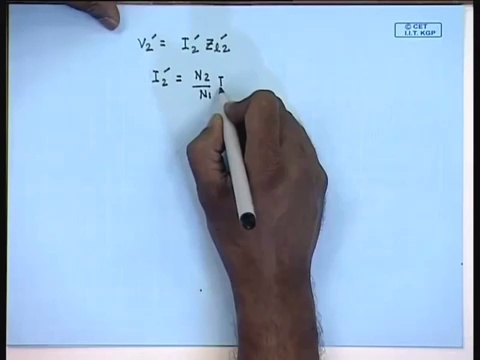 © CET
I.I.T. KGP
V₂′ = I₂′ Zl₂′
I₂′ = N₂/N₁ I